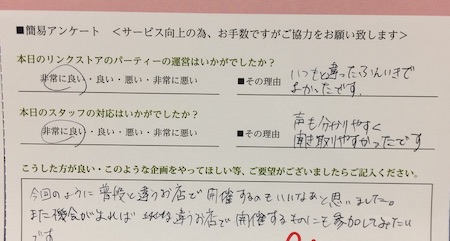 ■簡易アンケート ＜サービス向上の為、お手数ですがご協力をお願い致します＞
本日のリンクストアのパーティーの運営はいかがでしたか？
非常に良い・良い・悪い・非常に悪い ■その理由 いつもと違ったふんいきで
よかったです。
本日のスタッフの対応はいかがでしたか？
非常に良い・良い・悪い・非常に悪い ■その理由 声も分かりやすく
聞き取りやすかったです
こうした方が良い・このような企画をやってほしい等、ご要望がございましたらご記入ください。
今回のように普段と違うお店で開催するのもいいなあと思いました。
また機会があれば 違うお店で開催するものにも参加してみたい
です